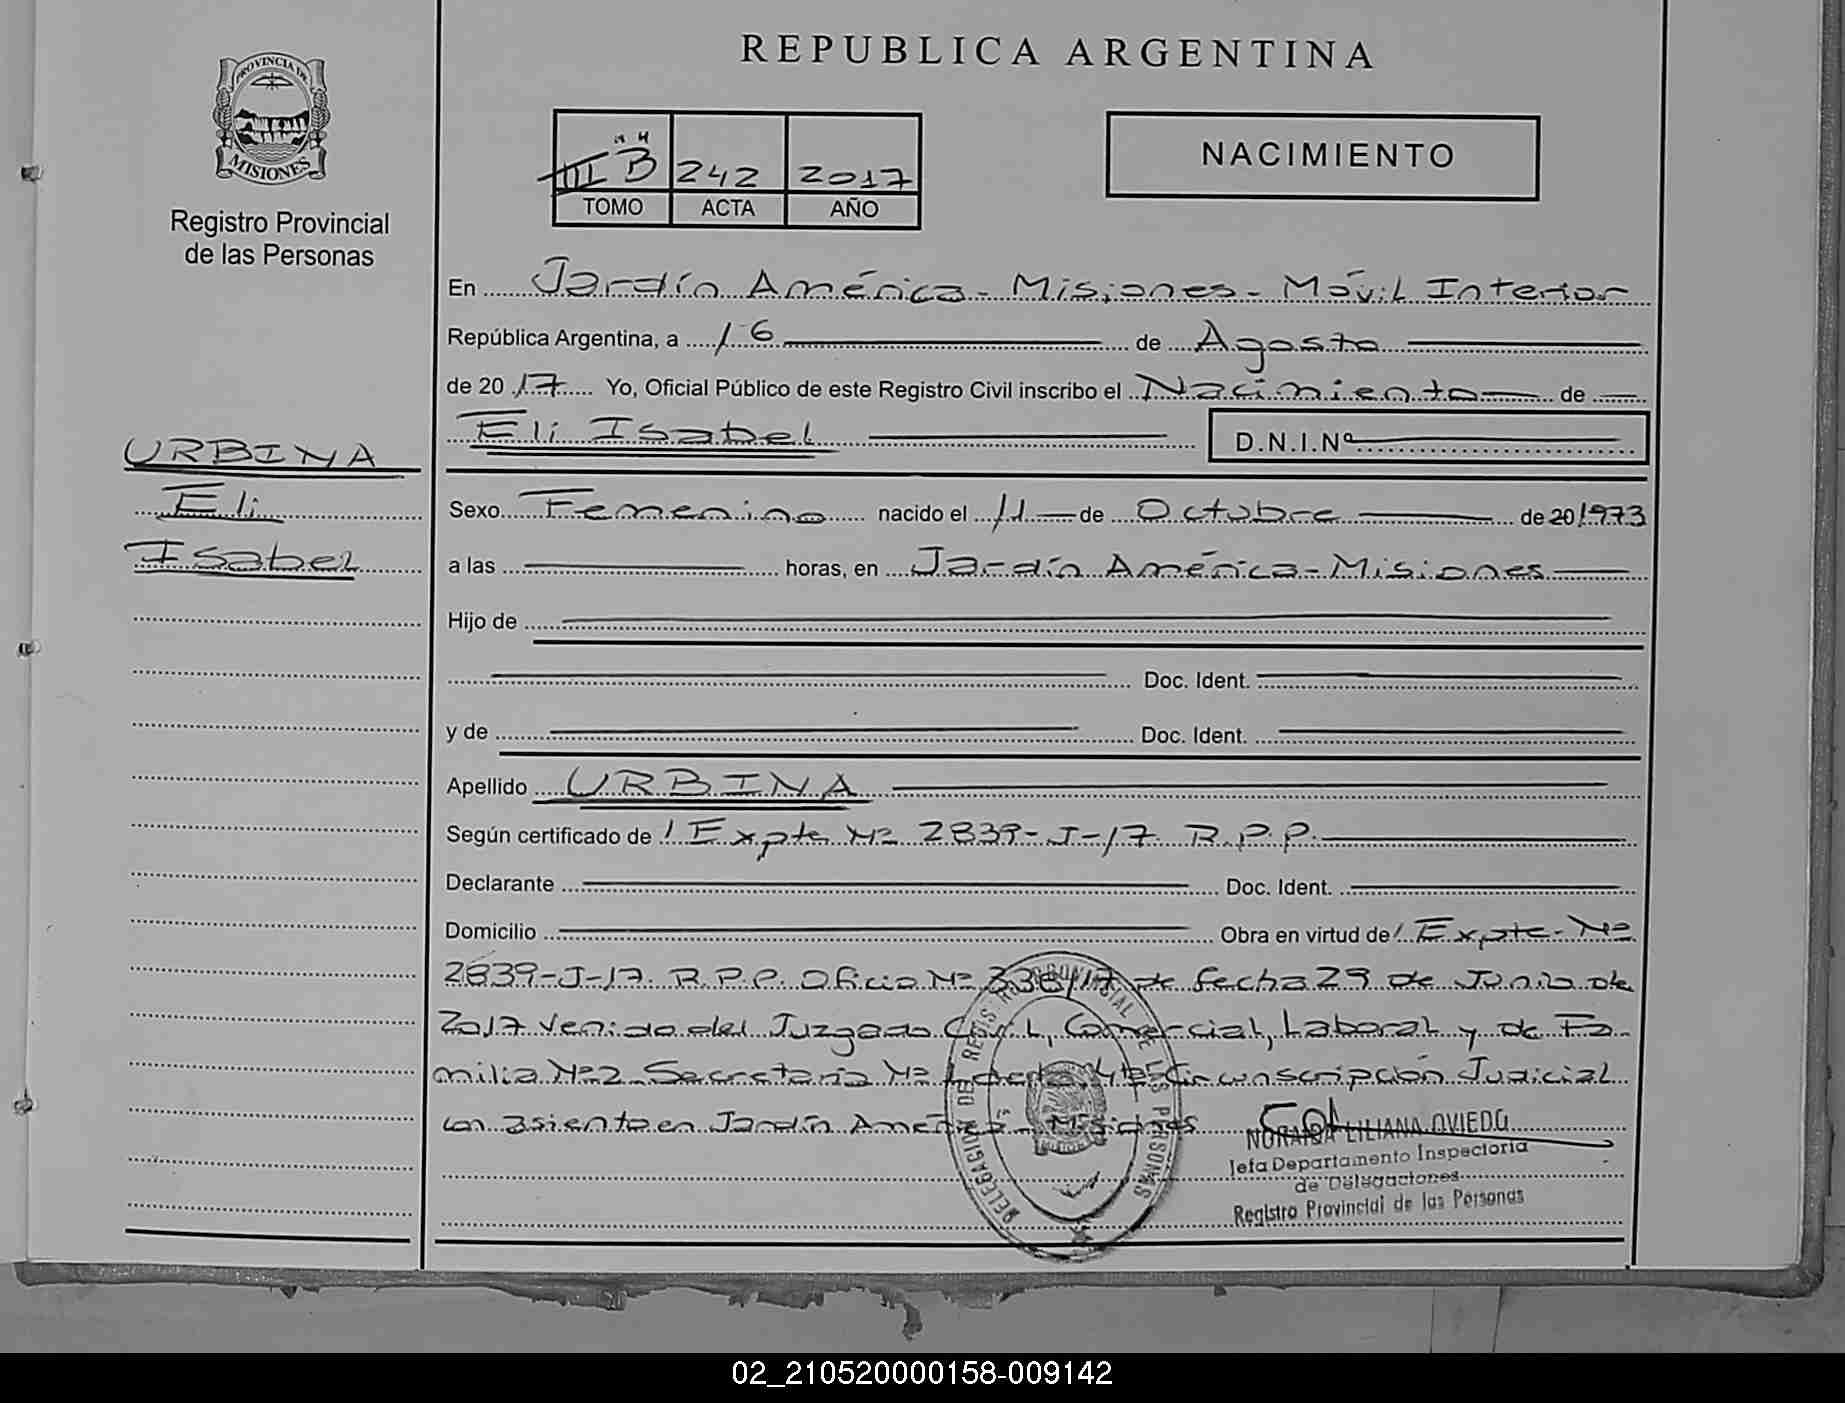 REPUBLICA ARGENTINA
PROVINCIA DE
MISIONES
Registro Provincial
de las Personas
III "B" 242 2017
TOMO ACTA AÑO
NACIMIENTO
En Jardín América - Misiones - Móvil Interior
República Argentina, a 16 de Agosto
de 2017 Yo, Oficial Público de este Registro Civil inscribo el Nacimiento de
Eli Isabel D.N.I.Nº
URBINA
Eli
Isabel
Sexo Femenino nacido el 11 de Octubre de 20 1973
a las horas, en Jardín América - Misiones
Hijo de
Doc. Ident.
y de Doc. Ident.
Apellido URBINA
Según certificado de Expte Nº 2839-J-17. R.P.P.
Declarante Doc. Ident.
Domicilio Obra en virtud de Expte. Nº
2839-J-17. R.P.P. Oficio Nº 336/17 de fecha 29 de Junio de
2017 venido del Juzgado Civil, Comercial, Laboral y de Fa-
milia Nº2 Secretaria Nº de la 4ta Circunscripción Judicial
con asiento en Jardín América - Misiones
DELEGACION DE REGISTRO PROVINCIAL DE LAS PERSONAS
LILIANA OVIEDO
Jefa Departamento Inspectoria
de Delegaciones
Registro Provincial de las Personas
02_210520000158-009142